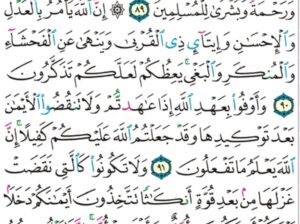 وَرَحْمَةً وَبُشْرَىٰ لِلْمُسْلِمِينَ ٨٩ ۞ إِنَّ ٱللَّهَ يَأْمُرُ بِٱلْعَدْلِ
وَٱلْإِحْسَٰنِ وَإِيتَآئِ ذِى ٱلْقُرْبَىٰ وَيَنْهَىٰ عَنِ ٱلْفَحْشَآءِ
وَٱلْمُنكَرِ وَٱلْبَغْىِ ۚ يَعِظُكُمْ لَعَلَّكُمْ تَذَكَّرُونَ
٩٠ وَأَوْفُوا۟ بِعَهْدِ ٱللَّهِ إِذَا عَٰهَدتُّمْ وَلَا تَنقُضُوا۟ ٱلْأَيْمَٰنَ
بَعْدَ تَوْكِيدِهَا وَقَدْ جَعَلْتُمُ ٱللَّهَ عَلَيْكُمْ كَفِيلًا ۚ إِنَّ
ٱللَّهَ يَعْلَمُ مَا تَفْعَلُونَ ٩١ وَلَا تَكُونُوا۟ كَٱلَّتِى نَقَضَتْ
غَزْلَهَا مِنۢ بَعْدِ قُوَّةٍ أَنكَٰثًا تَتَّخِذُونَ أَيْمَٰنَكُمْ دَخَلًۢا